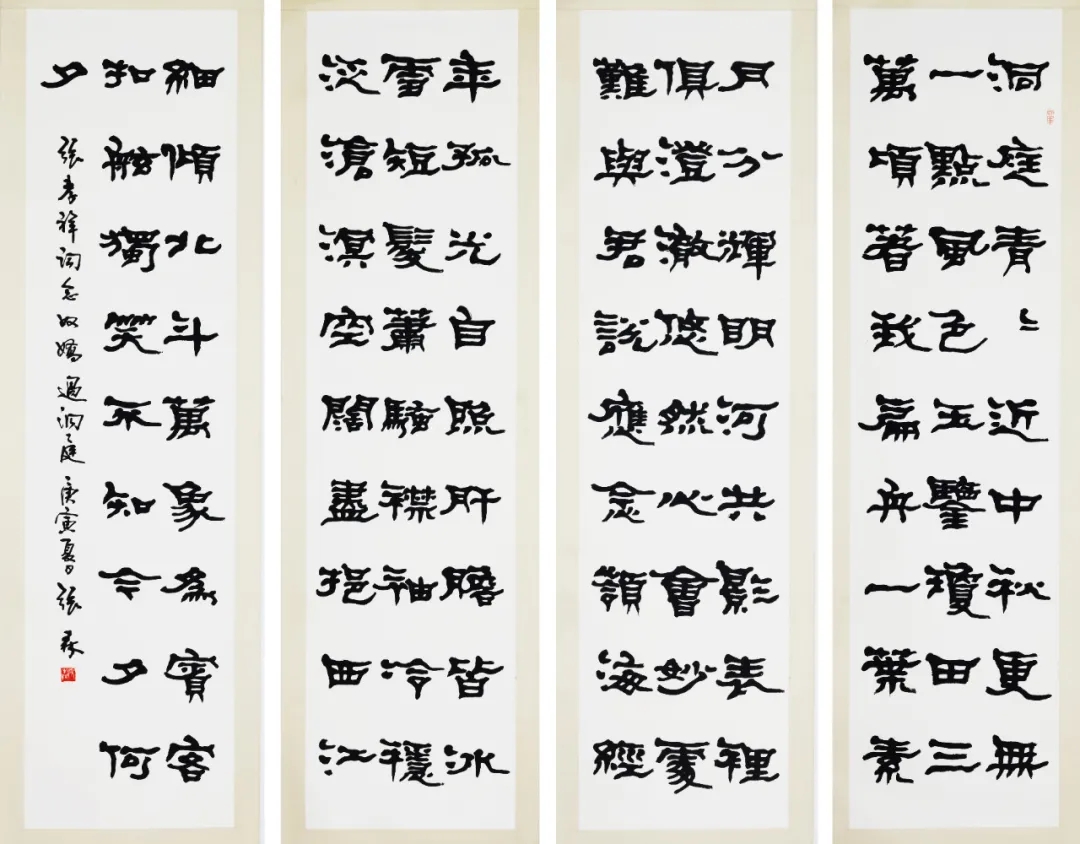 洞庭青〻近中秋更無
一點風色玉鑒瓊田三
萬頃著我扁舟一葉素
月分輝明河共影表裡
俱澄澈悠然心會妙處
難與君説應念嶺海經
年孤光自照肝膽皆冰
雪短髮蕭騷襟袖冷穩
泛滄溟空闊盡挹西江
細傾北斗萬象為賓客
扣舷獨笑不知今夕何
夕
張孝祥詞念奴嬌過洞庭庚寅夏日張森